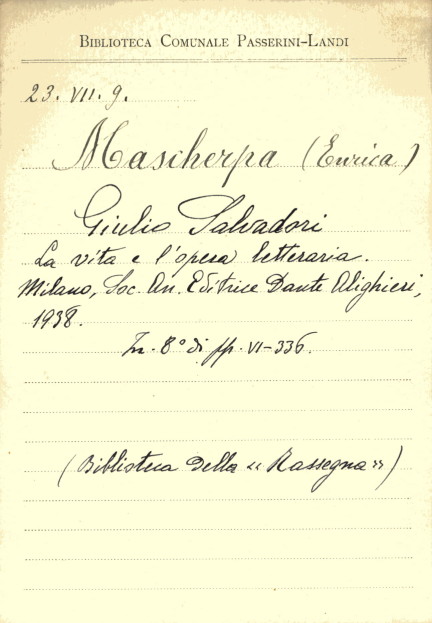 BIBLIOTECA COMUNALE PASSERINI-LANDI
23. VII. 9.
Mascherpa (Enrica)
Giulio Salvadori
La vita e l'opera letteraria.
Milano, Soc. An. Editrice Dante Alighieri,
1938.
In-8° di pp. VI-336.
(Biblioteca della «Rassegna»)